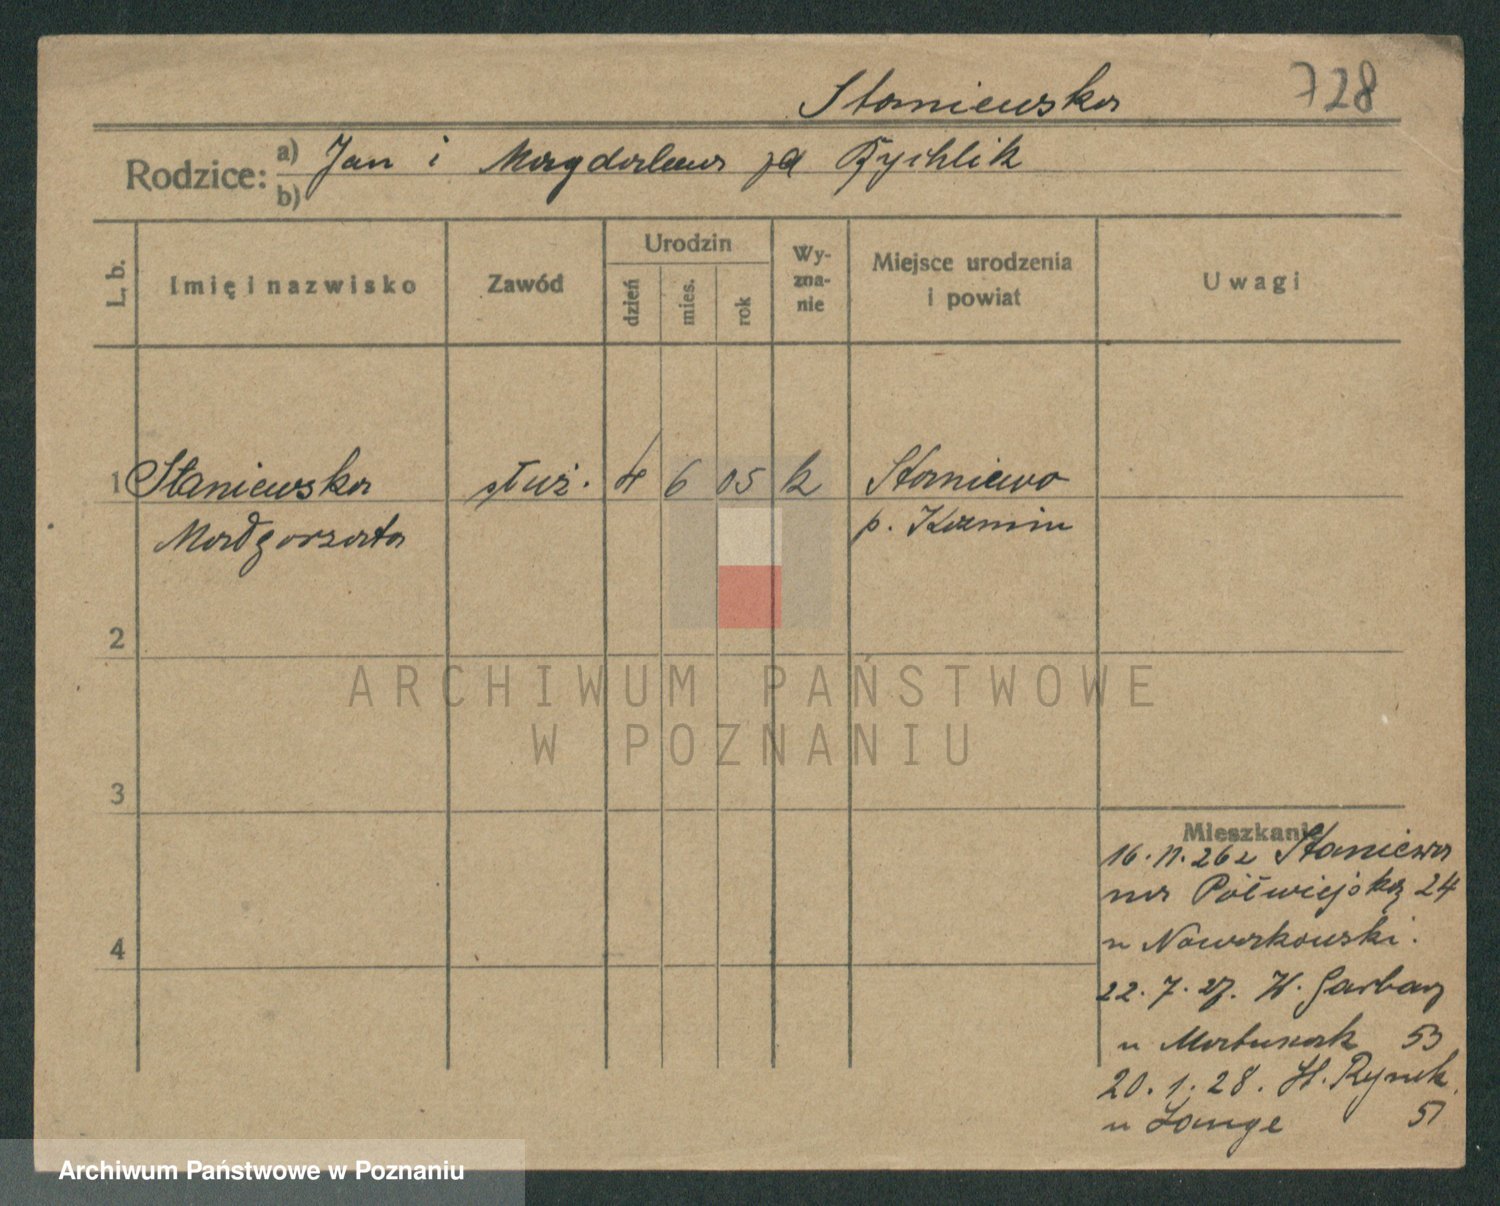 Staniewska 728
Rodzice: a) Jan i Magdalena zd Rychlik
b)
L. b. Imię i nazwisko Zawód Urodzin dzień mies. rok Wy-zna-nie Miejsce urodzenia i powiat Uwagi
1 Staniewska służ. 4 6 05 k Staniewo
Małgorzata p. Koźmin
2
3
4
Mieszkanie
16.11.26 z Staniewa
na Półwiejską 24
u Nowakowski.
22.7.27. W. Garbary
u Matuszak 53
20.1.28. St. Rynek
u Lange 51
ARCHIWUM PAŃSTWOWE
W POZNANIU
Archiwum Państwowe w Poznaniu